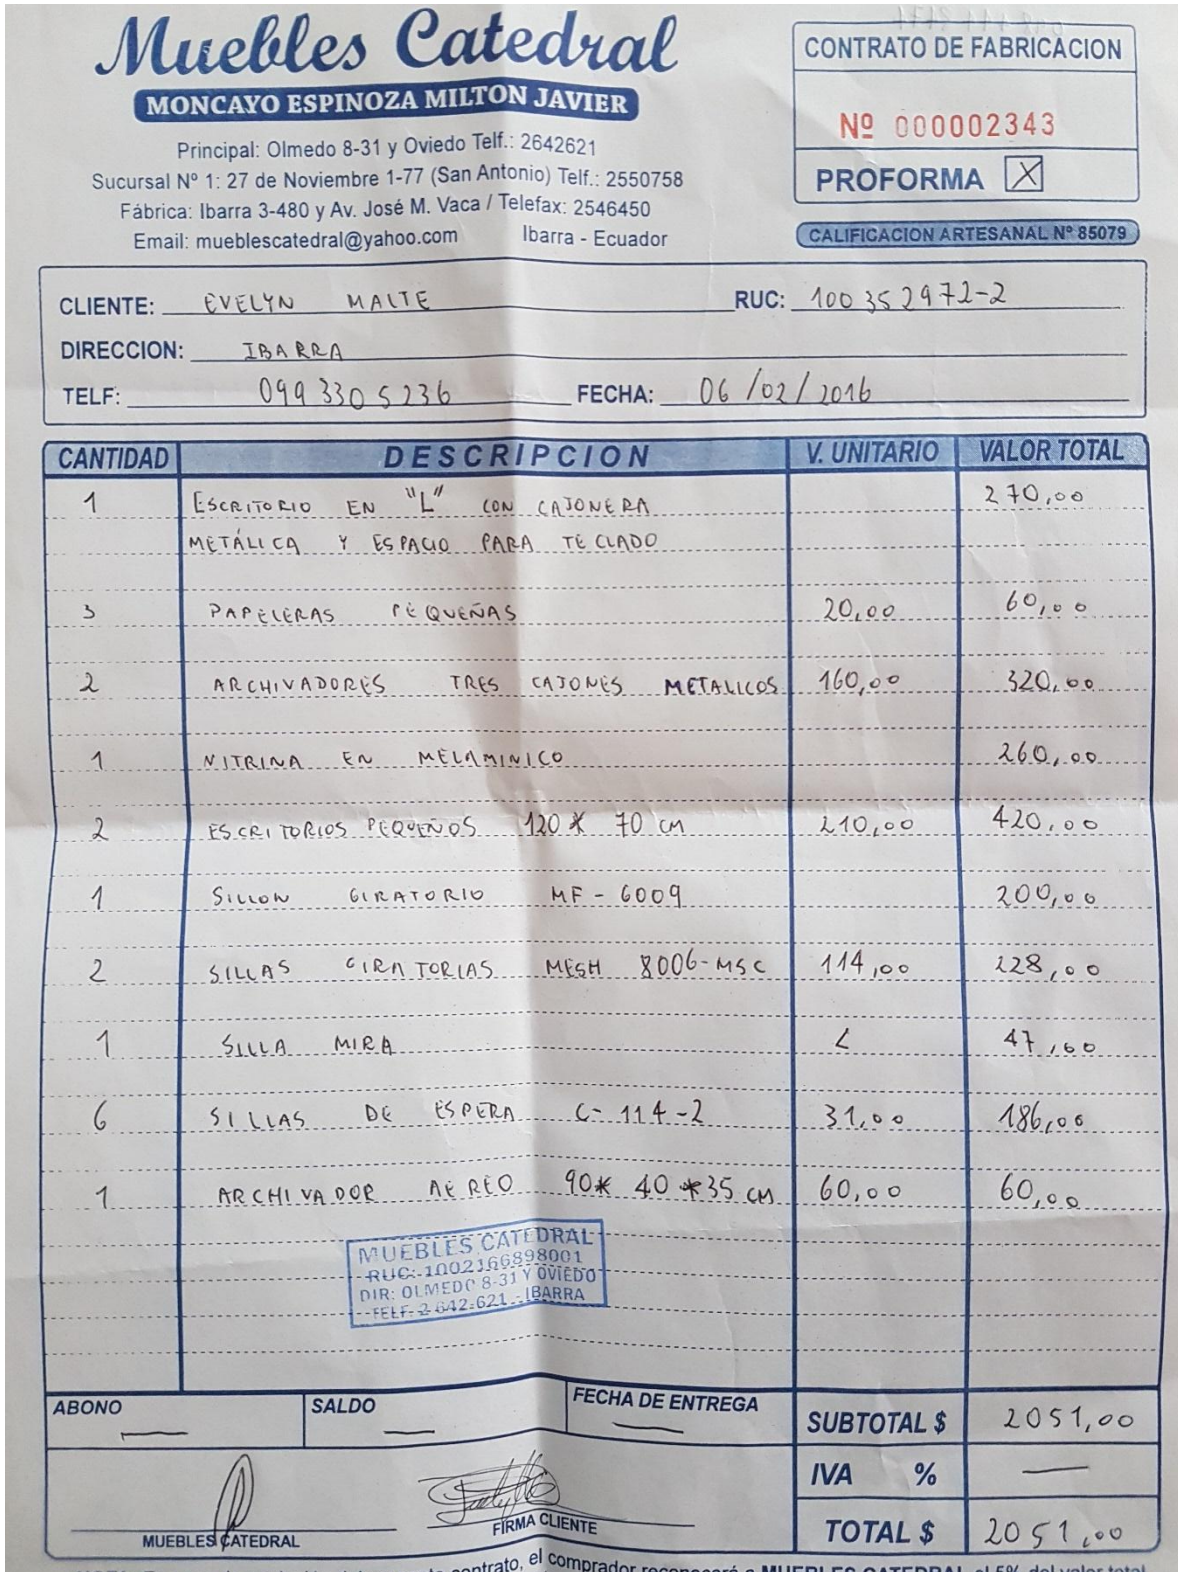 Muebles Catedral
MONCAYO ESPINOZA MILTON JAVIER
Principal: Olmedo 8-31 y Oviedo Telf.: 2642621
Sucursal Nº 1: 27 de Noviembre 1-77 (San Antonio) Telf.: 2550758
Fábrica: Ibarra 3-480 y Av. José M. Vaca / Telefax: 2546450
Email: mueblescatedral@yahoo.com Ibarra - Ecuador
CONTRATO DE FABRICACION
Nº 000002343
PROFORMA X
CALIFICACION ARTESANAL Nº 85079
CLIENTE: EVELYN MALTE RUC: 100352972-2
DIRECCION: IBARRA
TELF: 0993305236 FECHA: 06/02/2016
CANTIDAD DESCRIPCION V. UNITARIO VALOR TOTAL
1 ESCRITORIO EN "L" CON CAJONERA 270,00
METÁLICA Y ESPACIO PARA TECLADO
3 PAPELERAS PEQUEÑAS 20,00 60,00
2 ARCHIVADORES TRES CAJONES METALICOS 160,00 320,00
1 VITRINA EN MELAMINICO 260,00
2 ESCRITORIOS PEQUEÑOS 120 * 70 CM 210,00 420,00
1 SILLON GIRATORIO MF - 6009 200,00
2 SILLAS GIRATORIAS MESH 8006-MSC 114,00 228,00
1 SILLA MIRA 47,00
6 SILLAS DE ESPERA C- 114-2 31,00 186,00
1 ARCHIVADOR AEREO 90* 40 *35 CM 60,00 60,00
MUEBLES CATEDRAL
RUC: 1002166898001
DIR: OLMEDO 8-31 Y OVIEDO
TELF: 2 642-621 - IBARRA
ABONO — SALDO — FECHA DE ENTREGA —
SUBTOTAL $ 2051,00
IVA % —
TOTAL $ 2051,00
MUEBLES CATEDRAL
FIRMA CLIENTE
contrato, el comprador reconocerá a MUEBLES CATEDRAL el 5% del valor total